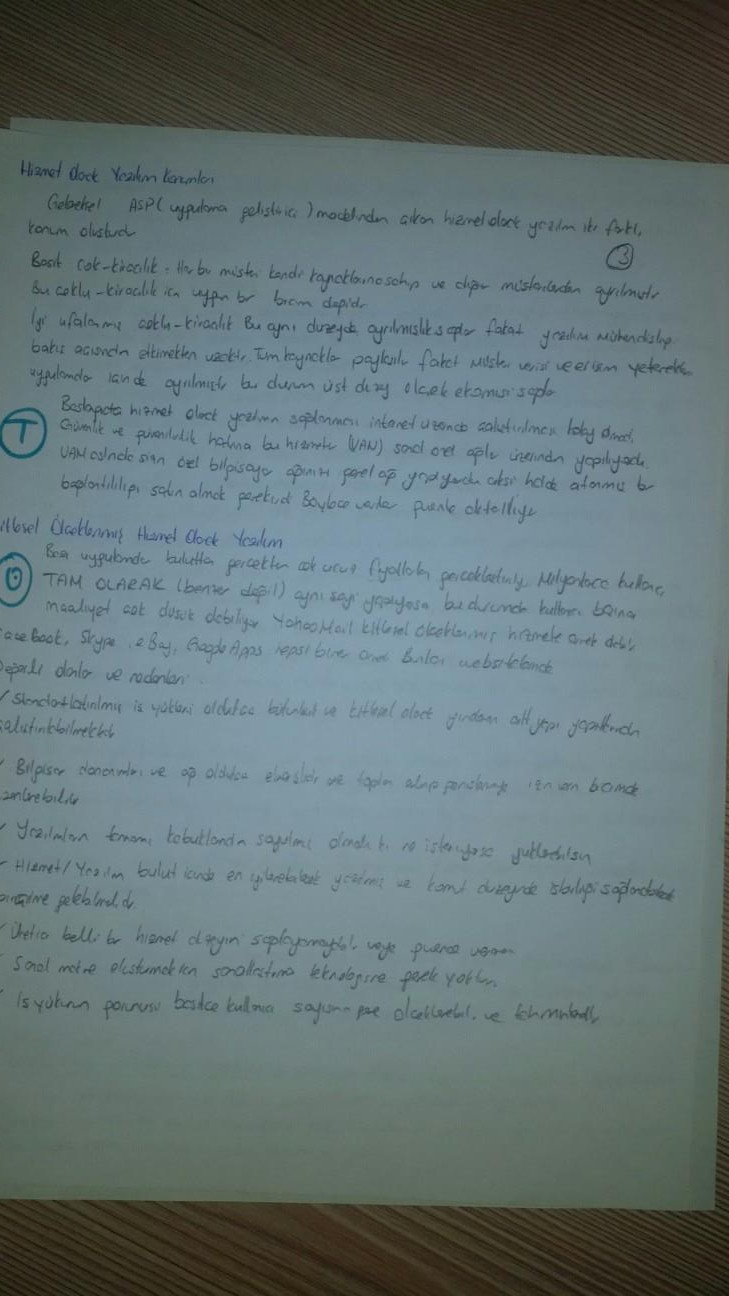 Hizmet Olarak Yazılım Kavramları
Geleneksel ASP( uygulama geliştirici ) modelinden çıkan hizmet olarak yazılım iki farklı
kavram oluşturdu
3
Basit çok-kiracılık : Her bir müşteri kendi kaynaklarına sahip ve diğer müşterilerden ayrılmıştır
Bu çoklu-kiracılık için uygun bir biçim değildir
İyi ufalanmış çoklu-kiracılık Bu aynı düzeyde ayrılmışlık sağlar fakat yazılım mühendisliği
bakış açısından etkinlikten uzaktır. Tüm kaynaklar paylaşılır fakat müşteri verisi ve erişim yetenekleri
uygulamada içinde ayrılmıştır bu durum üst düzey ölçek ekonomisi sağlar
T
Başlangıçta hizmet olarak yazılımın sağlanması internet üzerinde çalıştırılması kolay olmadı.
Güvenlik ve güvenilirlik hatrına bu hizmetler (VAN) sanal özel ağlar üzerinden yapılıyordu.
VAN aslında sizin özel bilgisayar ağınızı genel ağ yapıyordu aksi halde atanmış bir
bağlantılılığı satın almak gerekirdi Böylece veriler güvenle aktarılıyor
Kitlesel Ölçeklenmiş Hizmet Olarak Yazılım
Ö
Bazı uygulamalar bulutta gerçekten çok ucuz fiyatlarla gerçekleştirilmiş. Milyonlarca kullanıcı
TAM OLARAK (benzer değil) aynı şeyi yapıyorsa bu durumda kullanıcı başına
maaliyet çok düşük olabiliyor Yahoo Mail kitlesel ölçeklenmiş hizmete örnek olabilir
FaceBook, Skype, eBay, Google Apps hepsi birer örnek Bunlar websitelerinde
Değerli olanlar ve nedenleri.
✓ Standartlaştırılmış iş yükleri oldukça bütünleşik ve kitlesel olarak yardım alt yapı yapıtlarında
çalıştırılabilmektedir
✓ Bilgisayar donanımları ve ağ oldukça ve toplu izin veren biçimde
✓ Yazılımların tamamı kabuklarından soyulmuş olmalı ki ne isteniyorsa yüklenebilsin
✓ Hizmet/Yazılım bulut içinde en iyilenebilecek yazılmış ve komut düzeyinde işbirliği sağlanabilecek
biçime gelebilmelidir.
✓ Üretici belli bir hizmet düzeyini sağlayamayabilir veya güvence veremez
✓ Sanal makine oluşturmaktan sanallaştırma teknolojisine gerek yoktur.
✓ İş yükünün basitçe kullanıcı sayısına göre ölçeklenebilir. ve